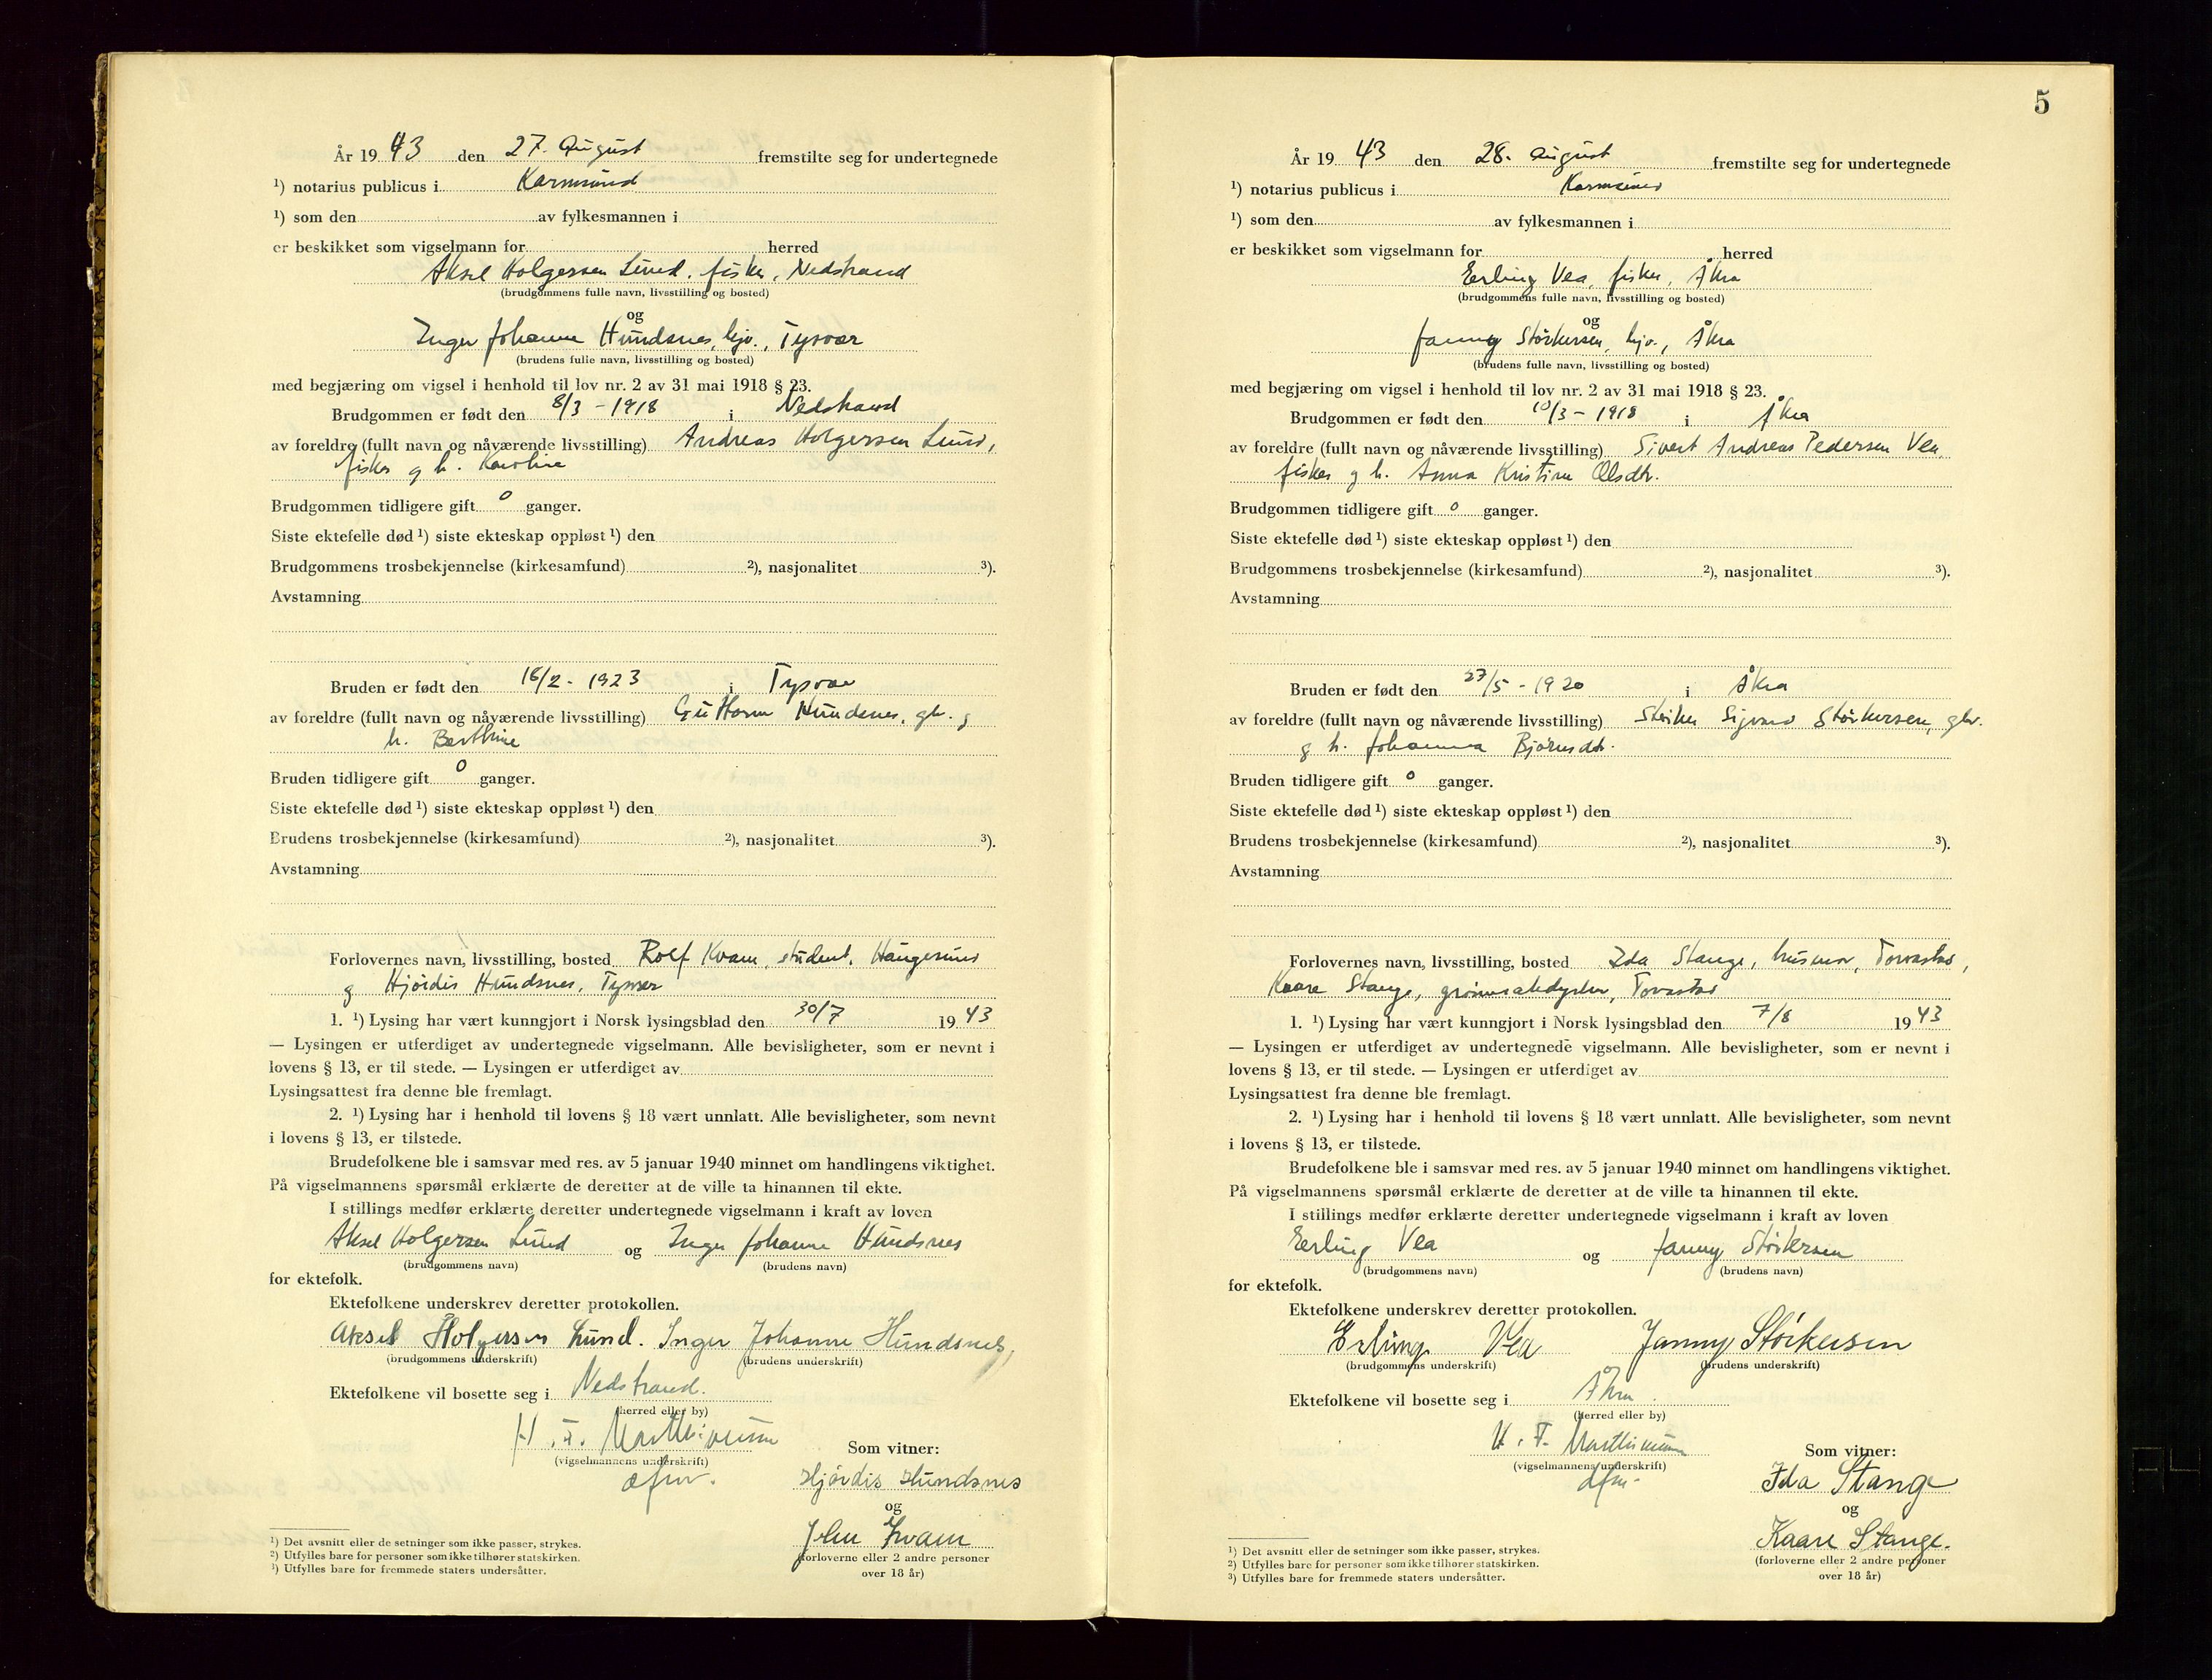 År 19 43 den 27. August fremstilte seg for undertegnede
¹) notarius publicus i Karmsund
¹) som den av fylkesmannen i
er beskikket som vigselmann for herred
Aksel Holgersen Lund, fisker, Nedstrand
(brudgommens fulle navn, livsstilling og bosted)
og
Inger Johanne Hundsnes, hjv., Tysvær
(brudens fulle navn, livsstilling og bosted)
med begjæring om vigsel i henhold til lov nr. 2 av 31 mai 1918 § 23.
Brudgommen er født den 8/3 - 1918 i Nedstrand
av foreldre (fullt navn og nåværende livsstilling) Andreas Holgersen Lund,
fisker g h. Karoline
Brudgommen tidligere gift 0 ganger.
Siste ektefelle død ¹) siste ekteskap oppløst ¹) den
Brudgommens trosbekjennelse (kirkesamfund) ²), nasjonalitet ³).
Avstamning
Bruden er født den 16/2 - 1923 i Tysvær
av foreldre (fullt navn og nåværende livsstilling) Guttorm Hundsnes, gbr. g
h. Berthine
Bruden tidligere gift 0 ganger.
Siste ektefelle død ¹) siste ekteskap oppløst ¹) den
Brudens trosbekjennelse (kirkesamfund) ²), nasjonalitet ³).
Avstamning
Forlovernes navn, livsstilling, bosted Rolf Kvam, student, Haugesund
g Hjördis Hundsnes, Tysvær
1. ¹) Lysing har vært kunngjort i Norsk lysingsblad den 30/7 19 43
— Lysingen er utferdiget av undertegnede vigselmann. Alle bevisligheter, som er nevnt i
lovens § 13, er til stede. — Lysingen er utferdiget av
Lysingsattest fra denne ble fremlagt.
2. ¹) Lysing har i henhold til lovens § 18 vært unnlatt. Alle bevisligheter, som nevnt
i lovens § 13, er tilstede.
Brudefolkene ble i samsvar med res. av 5 januar 1940 minnet om handlingens viktighet.
På vigselmannens spørsmål erklærte de deretter at de ville ta hinannen til ekte.
I stillings medfør erklærte deretter undertegnede vigselmann i kraft av loven
Aksel Holgersen Lund og Inger Johanne Hundsnes
(brudgommens navn) (brudens navn)
for ektefolk.
Ektefolkene underskrev deretter protokollen.
Aksel Holgersen Lund. Inger Johanne Hundsnes,
(brudgommens underskrift) (brudens underskrift)
Ektefolkene vil bosette seg i Nedstrand.
(herred eller by)
H. F.
(vigselmannens underskrift)
Som vitner:
Hjördis Hundsnes
og
John Kvam
(forloverne eller 2 andre personer
over 18 år)
¹) Det avsnitt eller de setninger som ikke passer, strykes.
²) Utfylles bare for personer som ikke tilhører statskirken.
³) Utfylles bare for fremmede staters undersåtter.
5
År 19 43 den 28. August fremstilte seg for undertegnede
¹) notarius publicus i Karmsund
¹) som den av fylkesmannen i
er beskikket som vigselmann for herred
Erling Vea, fisker, Åkra
(brudgommens fulle navn, livsstilling og bosted)
og
Janny Störkersen, hjv., Åkra
(brudens fulle navn, livsstilling og bosted)
med begjæring om vigsel i henhold til lov nr. 2 av 31 mai 1918 § 23.
Brudgommen er født den 10/3 - 1918 i Åkra
av foreldre (fullt navn og nåværende livsstilling) Sivert Andreas Pedersen Vea,
fisker g h. Anna Kristine Olsdtr.
Brudgommen tidligere gift 0 ganger.
Siste ektefelle død ¹) siste ekteskap oppløst ¹) den
Brudgommens trosbekjennelse (kirkesamfund) ²), nasjonalitet ³).
Avstamning
Bruden er født den 27/5 - 1920 i Åkra
av foreldre (fullt navn og nåværende livsstilling) Sigvard Störkersen, gbr.
g h. Johanna Björnsdtr.
Bruden tidligere gift 0 ganger.
Siste ektefelle død ¹) siste ekteskap oppløst ¹) den
Brudens trosbekjennelse (kirkesamfund) ²), nasjonalitet ³).
Avstamning
Forlovernes navn, livsstilling, bosted Ida Stange, husmor, Torvastad,
Kaare Stange, Torvastad
1. ¹) Lysing har vært kunngjort i Norsk lysingsblad den 7/8 19 43
— Lysingen er utferdiget av undertegnede vigselmann. Alle bevisligheter, som er nevnt i
lovens § 13, er til stede. — Lysingen er utferdiget av
Lysingsattest fra denne ble fremlagt.
2. ¹) Lysing har i henhold til lovens § 18 vært unnlatt. Alle bevisligheter, som nevnt
i lovens § 13, er tilstede.
Brudefolkene ble i samsvar med res. av 5 januar 1940 minnet om handlingens viktighet.
På vigselmannens spørsmål erklærte de deretter at de ville ta hinannen til ekte.
I stillings medfør erklærte deretter undertegnede vigselmann i kraft av loven
Erling Vea og Janny Störkersen
(brudgommens navn) (brudens navn)
for ektefolk.
Ektefolkene underskrev deretter protokollen.
Erling Vea Janny Störkersen
(brudgommens underskrift) (brudens underskrift)
Ektefolkene vil bosette seg i Åkra.
(herred eller by)
H. F.
(vigselmannens underskrift)
Som vitner:
Ida Stange
og
Kaare Stange.
(forloverne eller 2 andre personer
over 18 år)
¹) Det avsnitt eller de setninger som ikke passer, strykes.
²) Utfylles bare for personer som ikke tilhører statskirken.
³) Utfylles bare for fremmede staters undersåtter.